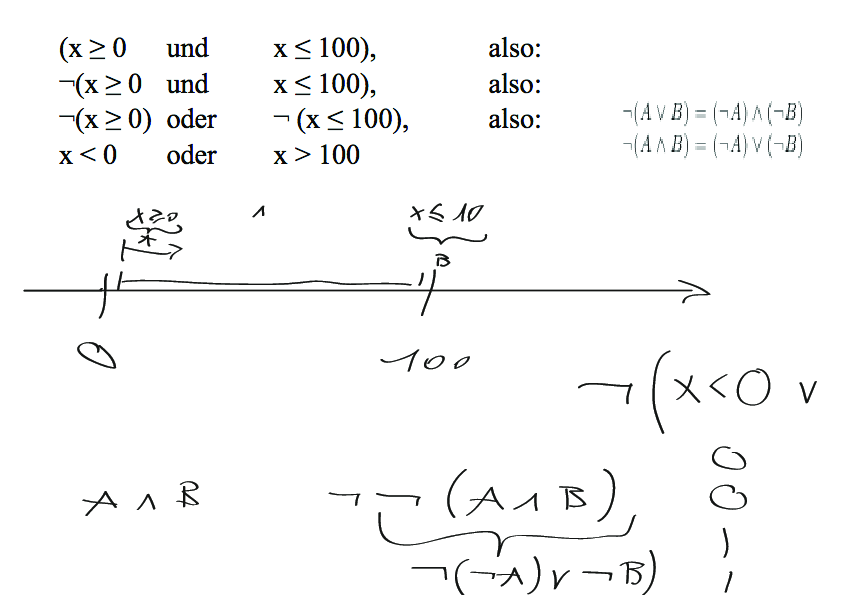 (x ≥ 0 und x ≤ 100), also:
¬(x ≥ 0 und x ≤ 100), also:
¬(x ≥ 0) oder ¬ (x ≤ 100), also:
x < 0 oder x > 100
¬(A ∨ B) = (¬A) ∧ (¬B)
¬(A ∧ B) = (¬A) ∨ (¬B)
x≥0 ∧ x ≤ 10
B
0 100
¬ (x<0 ∨
A ∧ B ¬ ¬ (A ∧ B)
¬(¬A) ∨ ¬B)
0
0
1
1